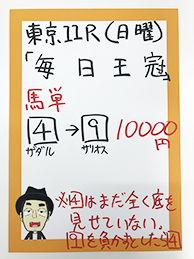 東京11R(日曜)
「毎日王冠」
馬単
4→9 10000円
ザダル サリオス
※4はまだ全く底を
見せていない。
9を負かすとしたら4